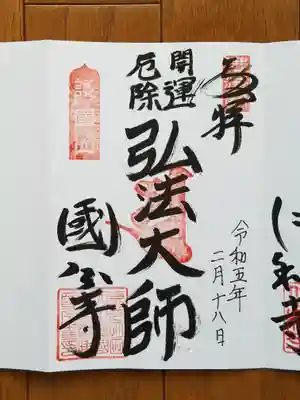 奉拝
令和五年
二月十八日
開運
厄除
弘法大師
國分寺